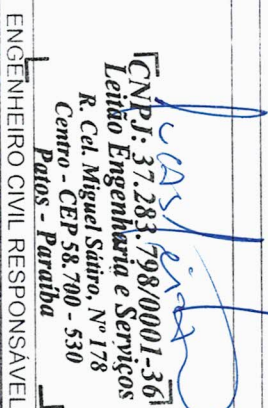 Lucas Leitão
CNPJ: 37.283.798/0001-36
Leitão Engenharia e Serviços
R. Cel. Miguel Sátiro, Nº 178
Centro - CEP 58.700 - 530
Patos - Paraíba
ENGENHEIRO CIVIL RESPONSÁVEL